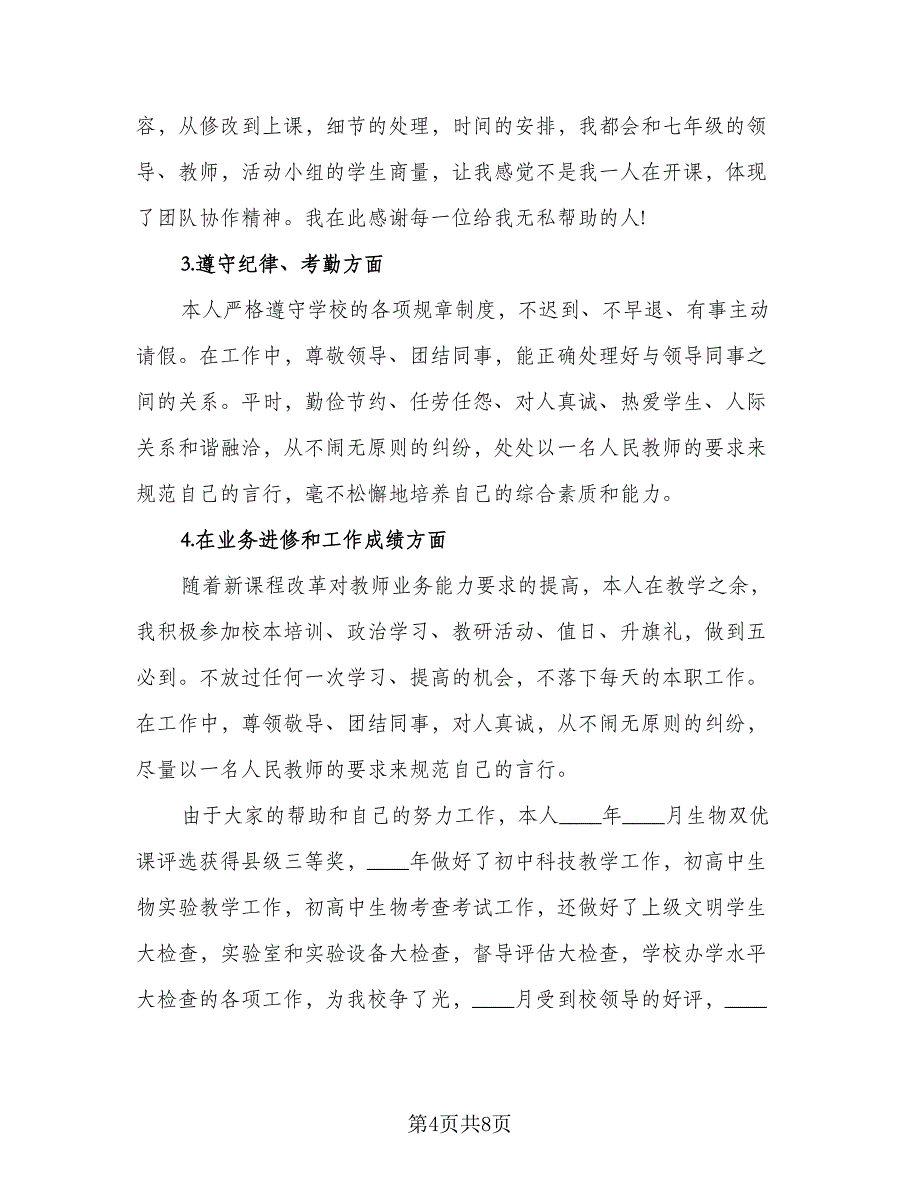 容，从修改到上课，细节的处理，时间的安排，我都会和七年级的领
导、教师，活动小组的学生商量，让我感觉不是我一人在开课，体现
了团队协作精神。我在此感谢每一位给我无私帮助的人!
3.遵守纪律、考勤方面
本人严格遵守学校的各项规章制度，不迟到、不早退、有事主动
请假。在工作中，尊敬领导、团结同事，能正确处理好与领导同事之
间的关系。平时，勤俭节约、任劳任怨、对人真诚、热爱学生、人际
关系和谐融洽，从不闹无原则的纠纷，处处以一名人民教师的要求来
规范自己的言行，毫不松懈地培养自己的综合素质和能力。
4.在业务进修和工作成绩方面
随着新课程改革对教师业务能力要求的提高，本人在教学之余，
我积极参加校本培训、政治学习、教研活动、值日、升旗礼，做到五
必到。不放过任何一次学习、提高的机会，不落下每天的本职工作。
在工作中，尊领敬导、团结同事，对人真诚，从不闹无原则的纠纷，
尽量以一名人民教师的要求来规范自己的言行。
由于大家的帮助和自己的努力工作，本人____年____月生物双优
课评选获得县级三等奖，____年做好了初中科技教学工作，初高中生
物实验教学工作，初高中生物考查考试工作，还做好了上级文明学生
大检查，实验室和实验设备大检查，督导评估大检查，学校办学水平
大检查的各项工作，为我校争了光，____月受到校领导的好评，____
第4页共8页